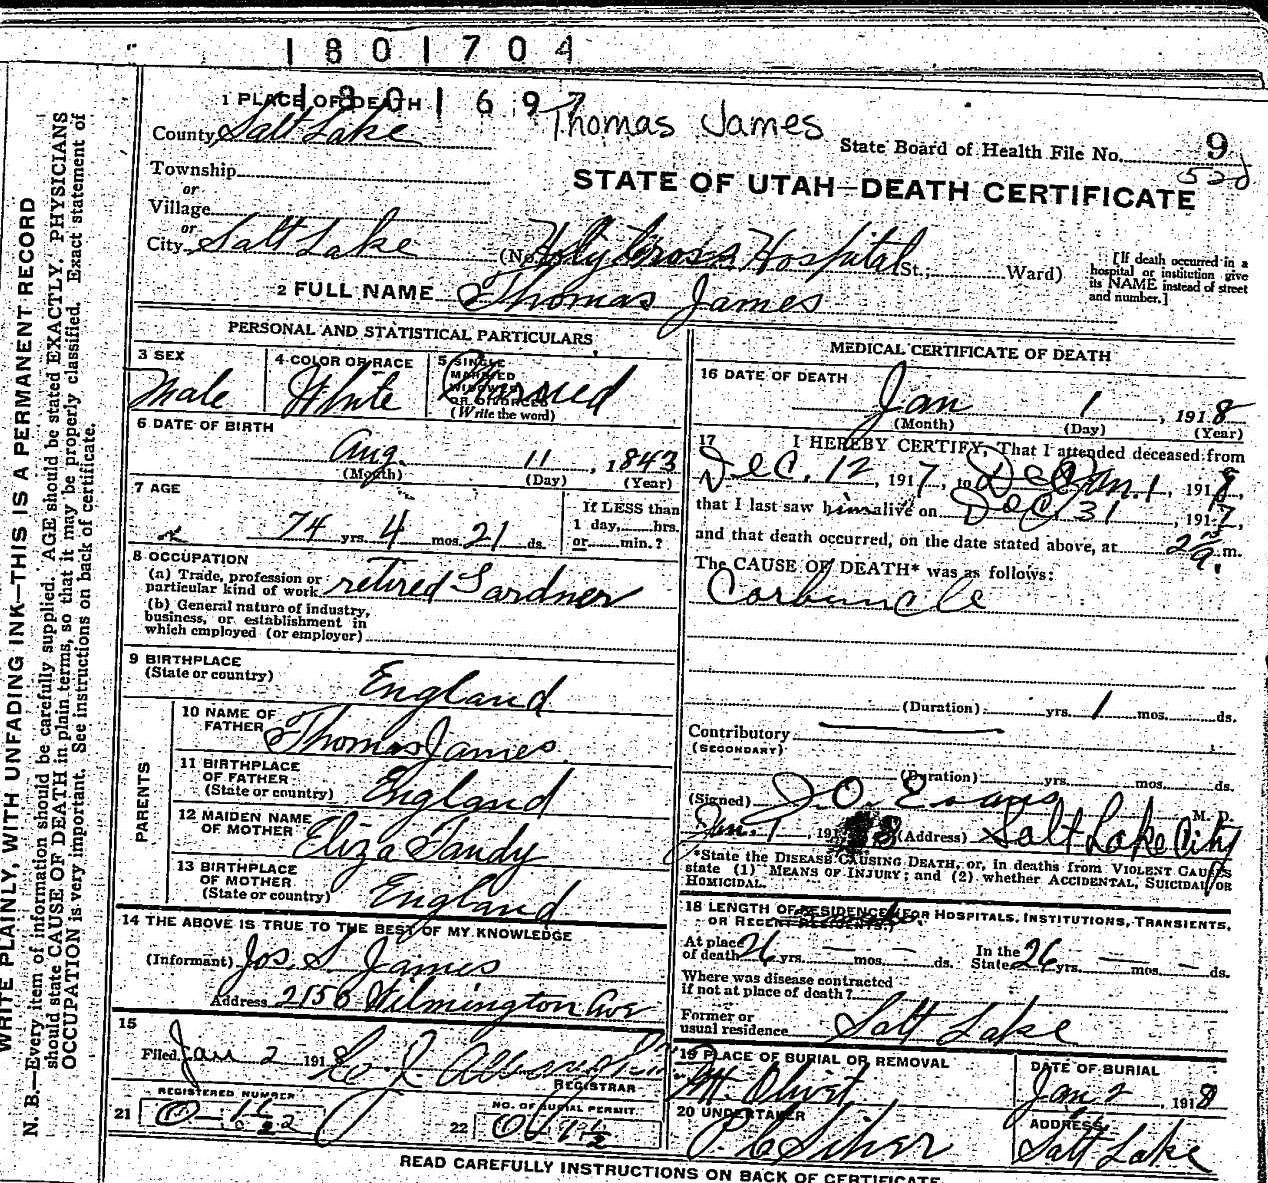 1801704
1801697
Thomas James
1 PLACE OF DEATH
County Salt Lake
State Board of Health File No. 9
Township
or
Village
or
STATE OF UTAH—DEATH CERTIFICATE
City Salt Lake (No. Holy Cross Hospital St.; Ward)
[If death occurred in a
hospital or institution give
its NAME instead of street
and number.]
2 FULL NAME Thomas James
PERSONAL AND STATISTICAL PARTICULARS
3 SEX
Male
4 COLOR OR RACE
White
5 SINGLE
MARRIED
WIDOWED
OR DIVORCED
(Write the word)
6 DATE OF BIRTH
Aug. 11, 1843
(Month) (Day) (Year)
7 AGE
74 yrs. 4 mos. 21 ds.
If LESS than
1 day, hrs.
or min.?
8 OCCUPATION
(a) Trade, profession or
particular kind of work retired Gardner
(b) General nature of industry,
business, or establishment in
which employed (or employer)
9 BIRTHPLACE
(State or country)
England
PARENTS
10 NAME OF
FATHER
Thomas James
11 BIRTHPLACE
OF FATHER
(State or country)
England
12 MAIDEN NAME
OF MOTHER
Eliza Tandy
13 BIRTHPLACE
OF MOTHER
(State or country)
England
14 THE ABOVE IS TRUE TO THE BEST OF MY KNOWLEDGE
(Informant) Jos. S. James
Address 2150 Wilmington Ave
15
Filed Jan 2 1918
REGISTRAR
REGISTERED NUMBER
21
NO. OF BURIAL PERMIT
22
MEDICAL CERTIFICATE OF DEATH
16 DATE OF DEATH
Jan 1, 1918
(Month) (Day) (Year)
17 I HEREBY CERTIFY, That I attended deceased from
Dec. 12, 1917, to Jan. 1, 1918,
that I last saw him alive on Dec. 31, 1917,
and that death occurred, on the date stated above, at m.
The CAUSE OF DEATH* was as follows:
Carbuncle
(Duration) yrs. 1 mos. ds.
Contributory
(SECONDARY)
(Duration) yrs. mos. ds.
(Signed) J. O. Evans M. D.
Jan. 1, 1918 (Address) Salt Lake City
*State the DISEASE CAUSING DEATH, or, in deaths from VIOLENT CAUSES
state (1) MEANS OF INJURY; and (2) whether ACCIDENTAL, SUICIDAL OR
HOMICIDAL.
18 LENGTH OF RESIDENCE (FOR HOSPITALS, INSTITUTIONS, TRANSIENTS,
OR RECENT RESIDENTS.)
At place
of death 26 yrs. — mos. — ds.
In the
State 26 yrs. — mos. — ds.
Where was disease contracted
if not at place of death?
Former or
usual residence Salt Lake
19 PLACE OF BURIAL OR REMOVAL
Mt. Olivet
DATE OF BURIAL
Jan 2, 1918
20 UNDERTAKER
ADDRESS
Salt Lake
READ CAREFULLY INSTRUCTIONS ON BACK OF CERTIFICATE.
WRITE PLAINLY, WITH UNFADING INK—THIS IS A PERMANENT RECORD
N. B.—Every item of information should be carefully supplied. AGE should be stated EXACTLY. PHYSICIANS
should state CAUSE OF DEATH in plain terms, so that it may be properly classified. Exact statement of
OCCUPATION is very important. See instructions on back of certificate.